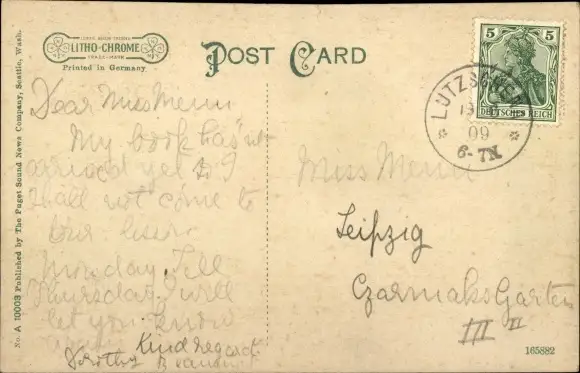 LITHO-CHROME
TRADE-MARK
Printed in Germany
POST CARD
No. A 10003 Published by The Puget Sound News Company, Seattle, Wash.
5 5
DEUTSCHES REICH
LÜTZSCHENA
09
6-7N.
Dear Miss Menn
My book has'nt
arrived yet so I
shall not come to
our lesson
Monday. Till
Thursday I will
let you know
Kind regards
Dorothy
Miss Menn
Leipzig
Czarmaks Garten
III II
165882